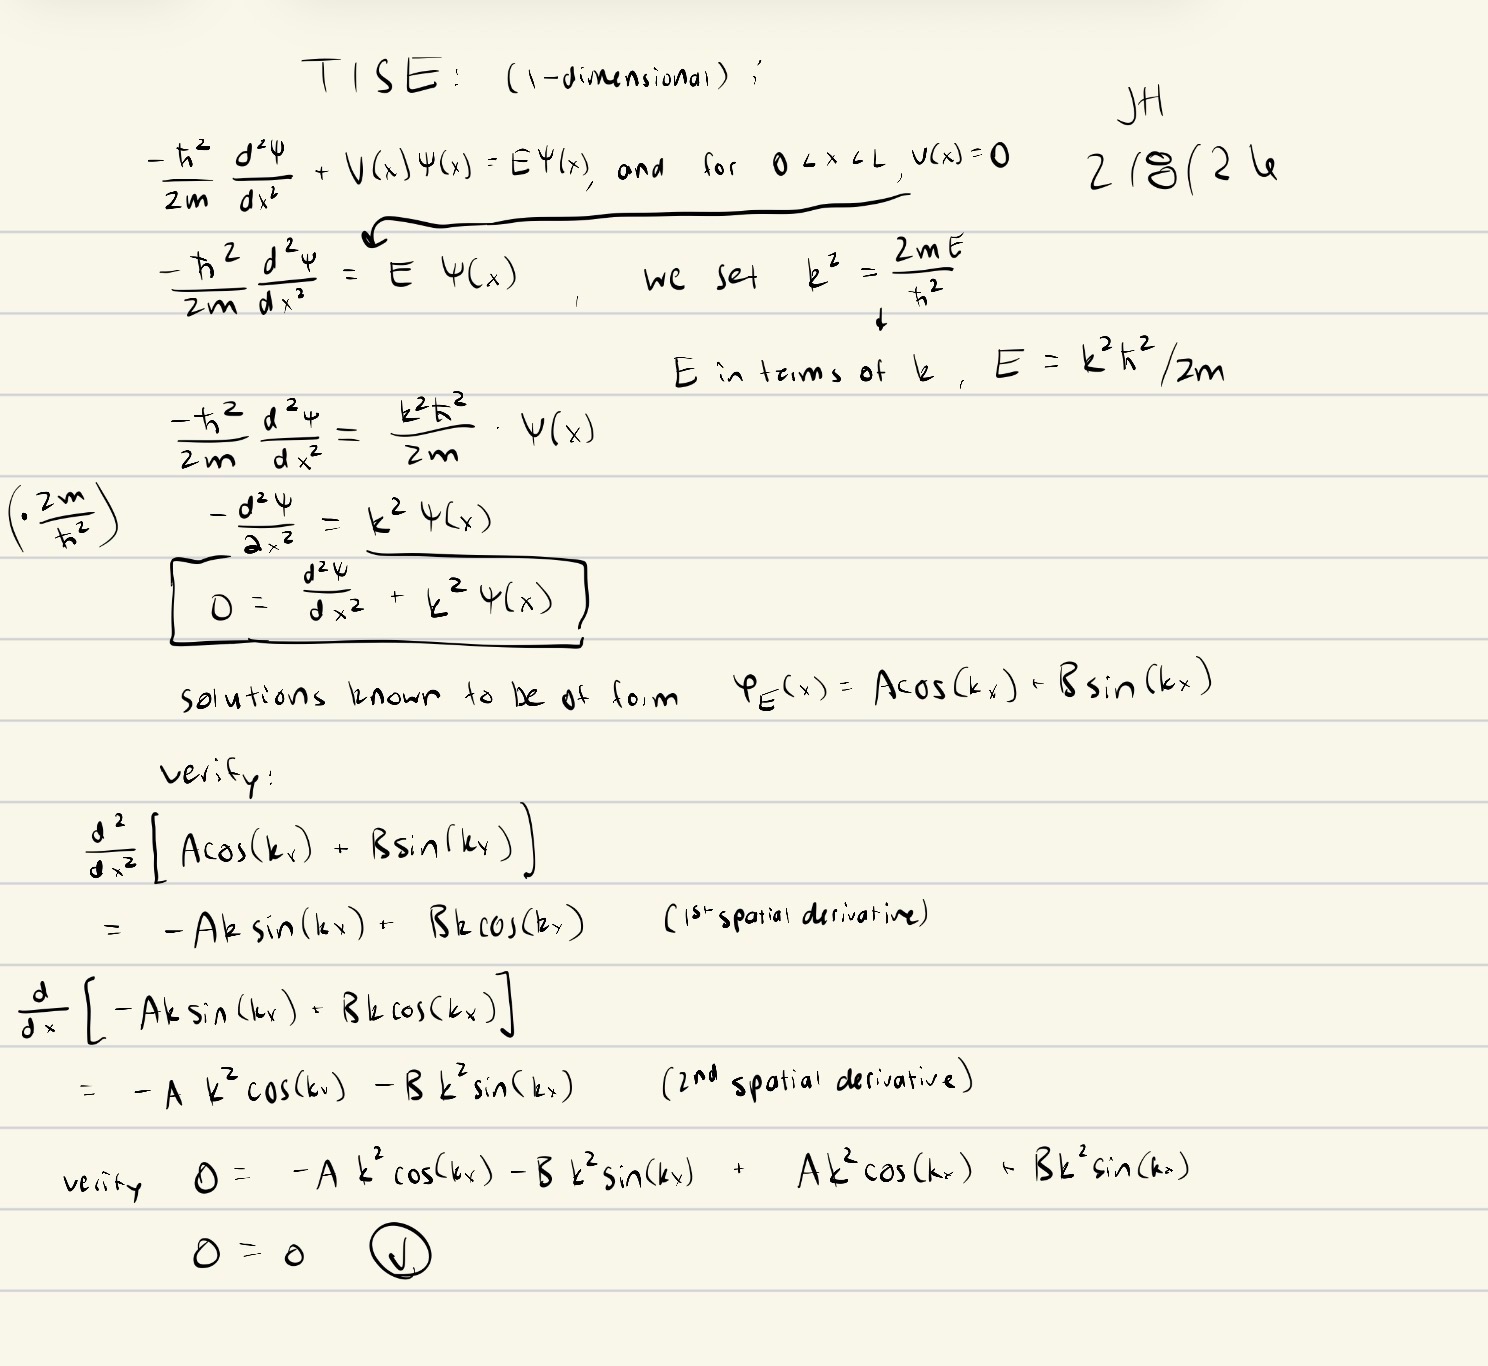 TISE: (1-dimensional):
JH
2/8/26
-ħ²/2m d²Ψ/dx² + V(x)Ψ(x) = EΨ(x), and for 0 < x < L, V(x) = 0
-ħ²/2m d²Ψ/dx² = E Ψ(x), we set k² = 2mE/ħ²
E in terms of k, E = k²ħ²/2m
-ħ²/2m d²Ψ/dx² = k²ħ²/2m · Ψ(x)
(· 2m/ħ²) -d²Ψ/dx² = k² Ψ(x)
0 = d²Ψ/dx² + k² Ψ(x)
solutions known to be of form φ_E(x) = Acos(kx) + Bsin(kx)
verify:
d²/dx² [Acos(kx) + Bsin(kx)]
= -Ak sin(kx) + Bk cos(kx) (1st spatial derivative)
d/dx [-Ak sin(kx) + Bk cos(kx)]
= -A k² cos(kx) - B k² sin(kx) (2nd spatial derivative)
verify 0 = -A k² cos(kx) - B k² sin(kx) + Ak² cos(kx) + Bk² sin(kx)
0 = 0 ✓